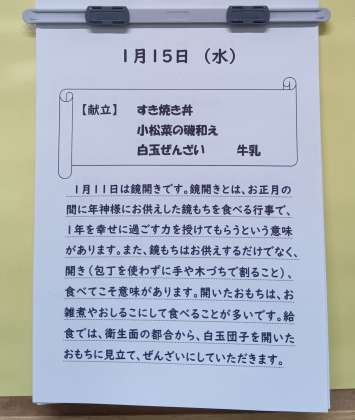 1月15日 (水)
【献立】 すき焼き丼
小松菜の磯和え
白玉ぜんざい 牛乳
1月11日は鏡開きです。鏡開きとは、お正月の
間に年神様にお供えした鏡もちを食べる行事で、
1年を幸せに過ごす力を授けてもらうという意味
があります。また、鏡もちはお供えするだけでなく、
開き(包丁を使わずに手や木づちで割ること)、
食べてこそ意味があります。開いたおもちは、お
雑煮やおしるこにして食べることが多いです。給
食では、衛生面の都合から、白玉団子を開いた
おもちに見立て、ぜんざいにしていただきます。